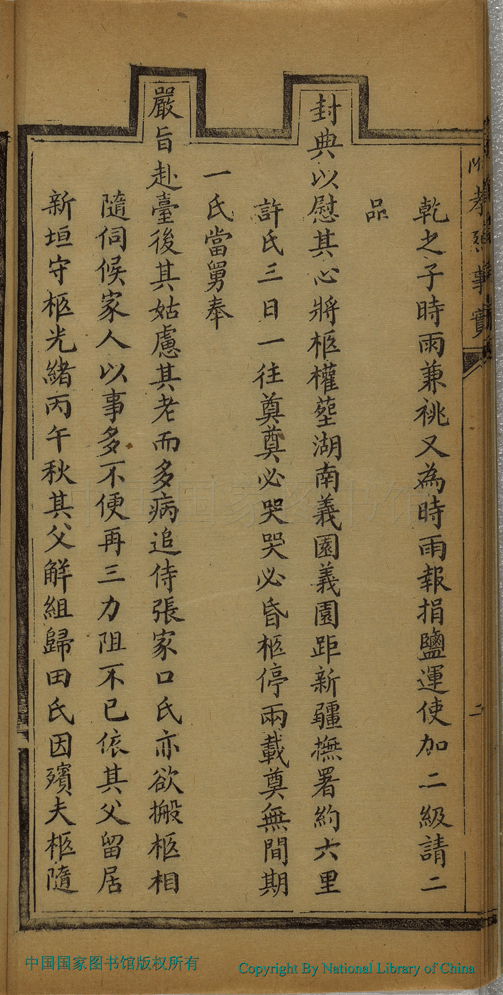 孝烈事實
二
乾之子時雨兼祧又為時雨報捐鹽運使加二級請二
品
封典以慰其心將柩權塟湖南義園義園距新疆撫署約六里
許氏三日一往奠奠必哭哭必昏柩停兩載奠無間期
一氏當舅奉
嚴旨赴臺後其姑慮其老而多病追侍張家口氏亦欲搬柩相
隨伺候家人以事多不便再三力阻不已依其父留居
新垣守柩光緒丙午秋其父解組歸田氏因殯夫柩隨
中国国家图书馆版权所有
Copyright By National Library of China